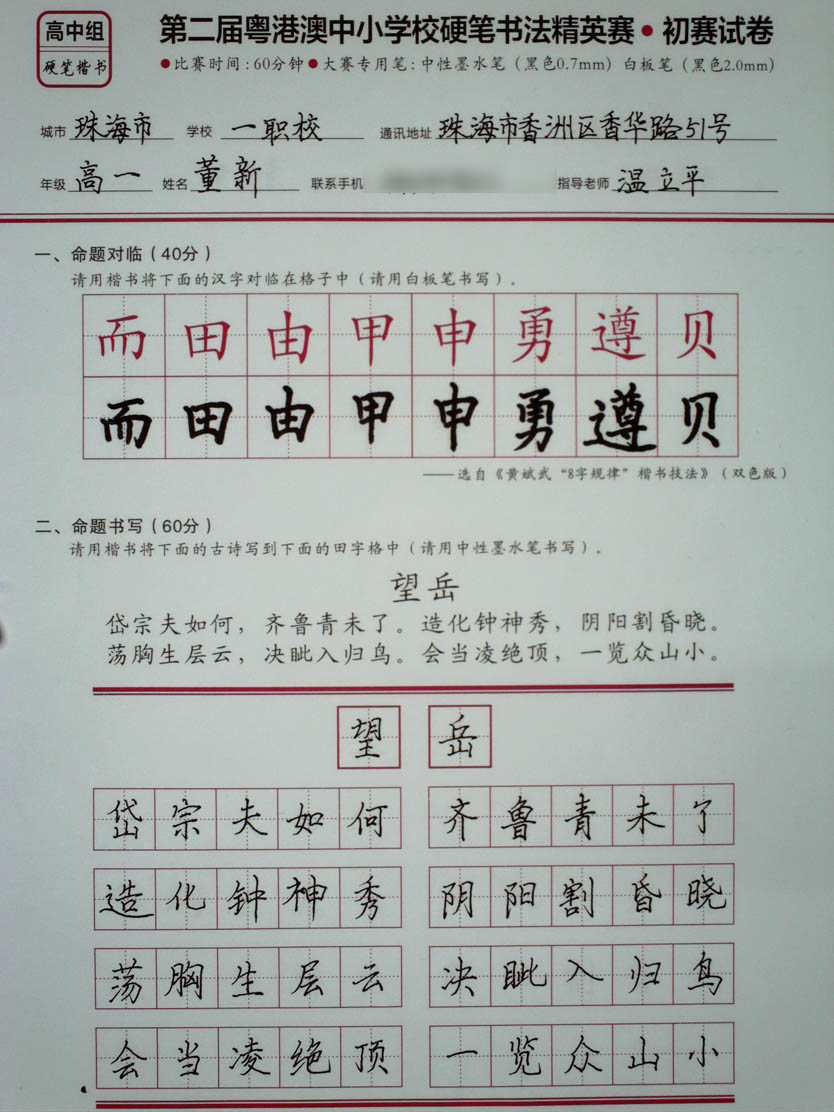 高中组
硬笔楷书
第二届粤港澳中小学校硬笔书法精英赛•初赛试卷
●比赛时间:60分钟●大赛专用笔:中性墨水笔(黑色0.7mm) 白板笔(黑色2.0mm)
城市 珠海市 学校 一职校 通讯地址 珠海市香洲区香华路51号
年级 高一 姓名 董新 联系手机 指导老师 温立平
一、命题对临(40分)
请用楷书将下面的汉字对临在格子中(请用白板笔书写)。
而田由甲申勇遵贝
而田由甲申勇遵贝
——选自《黄斌武“8字规律”楷书技法》(双色版)
二、命题书写(60分)
请用楷书将下面的古诗写到下面的田字格中(请用中性墨水笔书写)。
望岳
岱宗夫如何，齐鲁青未了。造化钟神秀，阴阳割昏晓。
荡胸生层云，决眦入归鸟。会当凌绝顶，一览众山小。
望岳
岱宗夫如何 齐鲁青未了
造化钟神秀 阴阳割昏晓
荡胸生层云 决眦入归鸟
会当凌绝顶 一览众山小